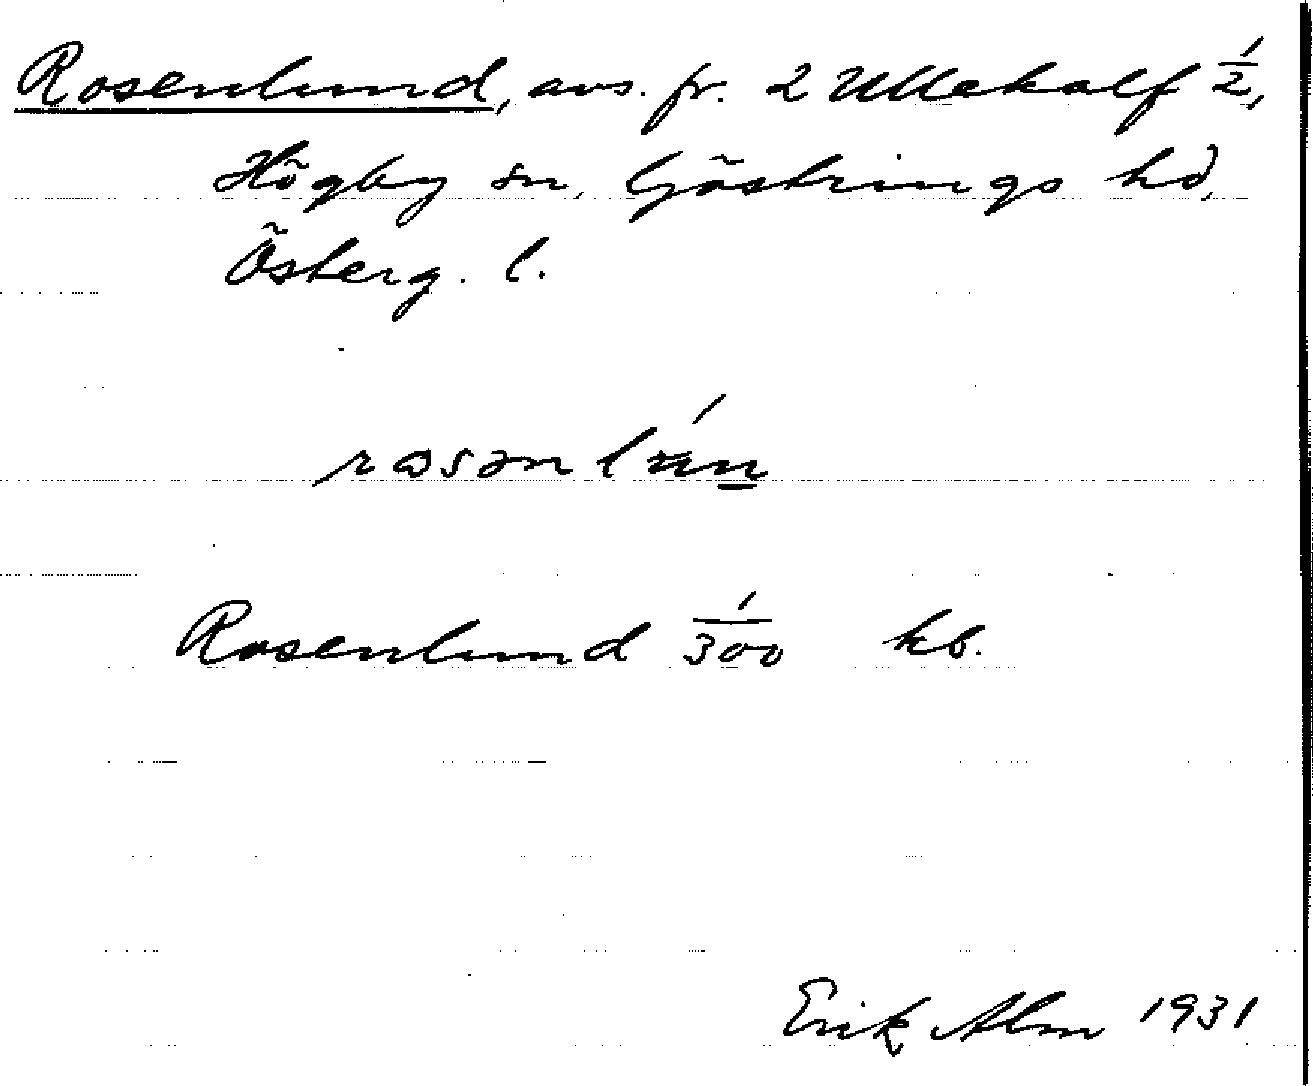 Rosenlund, avs. fr. 2 Ullekalf 1/2,
Högby sn, Göstrings hd,
Österg. l.
Rosenlund 1/300 kb.
Erik Alm 1931